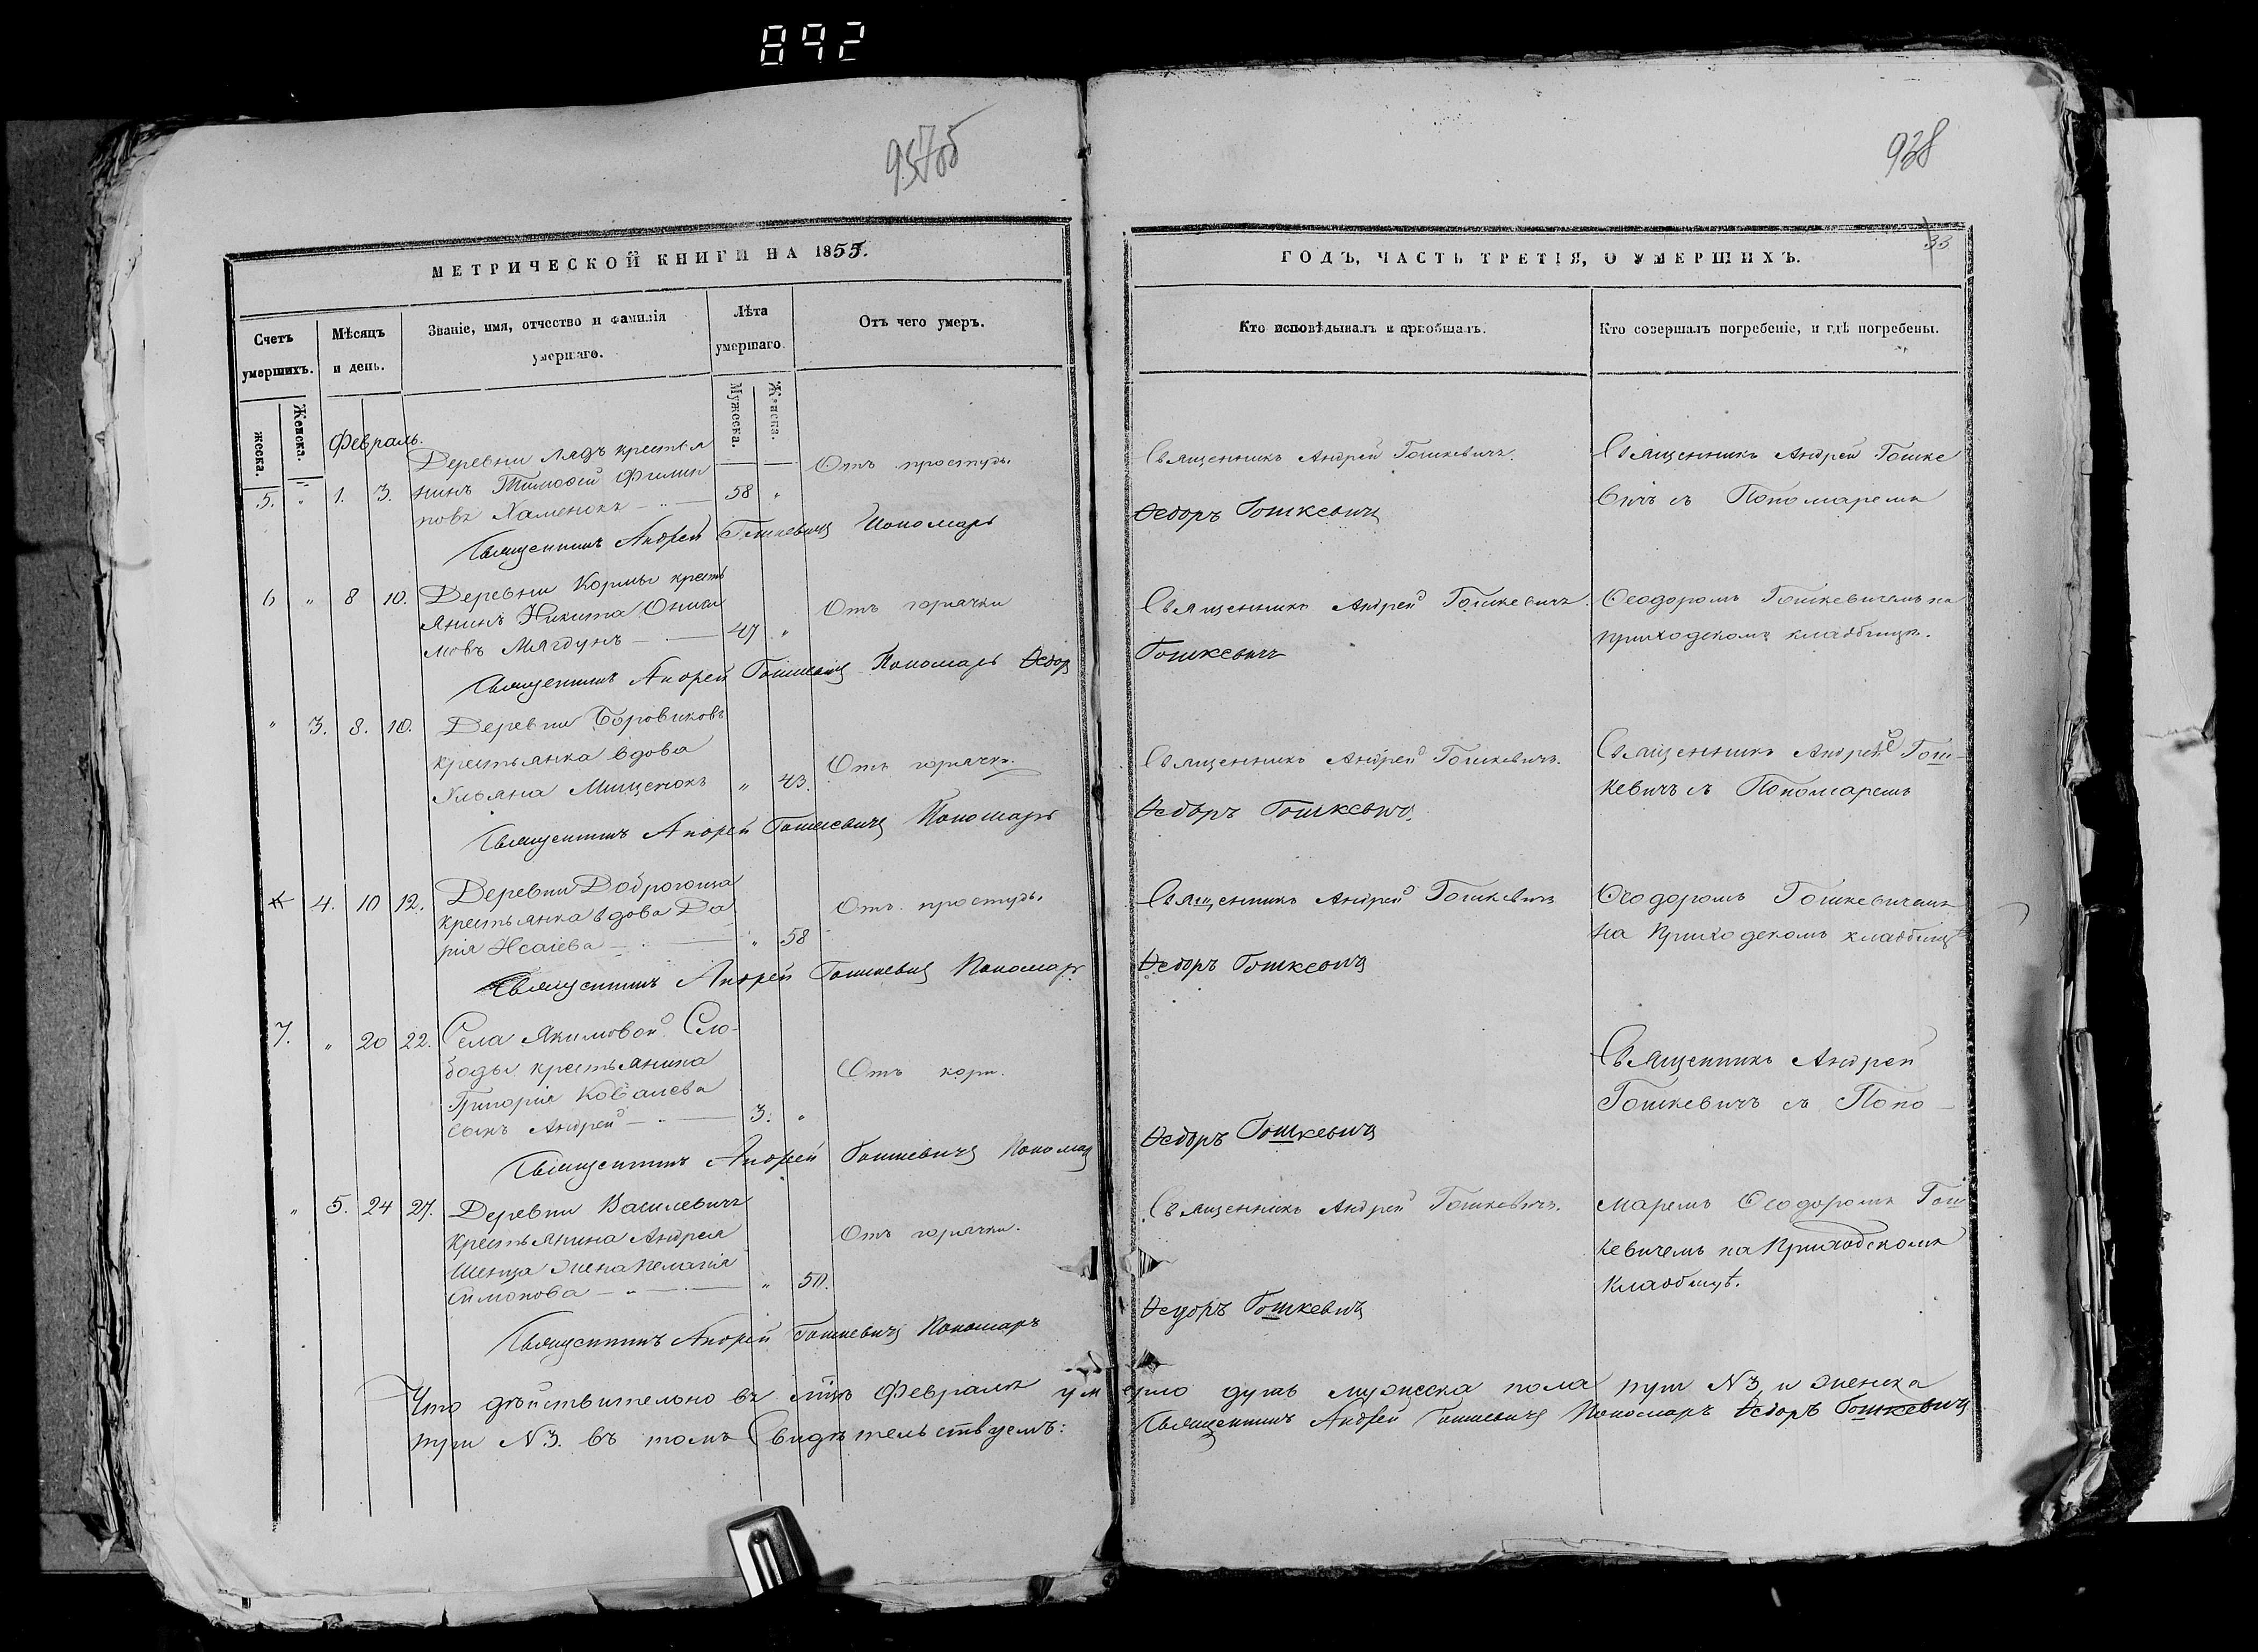 892
957об
938
33
МЕТРИЧЕСКОЙ КНИГИ НА 1855.
Счетъ умершихъ.
Мѣсяцъ и день.
Званіе, имя, отчество и фамилія умершаго.
Лѣта умершаго.
Отъ чего умеръ.
жеска.
Женска.
Мужеска.
Женска.
Февраль.
Деревни Лядъ крестья
5. " 1. 3. нинъ Тимофей Филип 58 " Отъ простуды
повъ Хаменокъ
Священникъ Андрей Гошкевичъ Пономарь
6 " 8 10. Деревни Кормы кресть
янинъ Никита Онисі Отъ горячки
мовъ Мягдунъ 47 "
Священникъ Андрей Гошкевичъ Пономарь Ѳедоръ
" 3. 8. 10. Деревни Боровиковъ
крестьянка вдова Отъ горячки.
Ульяна Мищенокъ " 43.
Священникъ Андрей Гошкевичъ Пономарь
4. 10 12. Деревни Доброгоща
крестьянка вдова Да Отъ простуды
рія Исаіева " 58
Священникъ Андрей Гошкевичъ Пономарь
7. " 20 22. Села Якимовой Сло-
боды крестьянина Отъ кори.
Григорія Ковалева
сынъ Андрей 3. "
Священникъ Андрей Гошкевичъ Пономарь
" 5. 24 27. Деревни Василевичъ
крестьянина Андрея Отъ горячки.
Шевца жена Пелагія
Симонова " 50.
Священникъ Андрей Гошкевичъ Пономарь
Что дѣйствительно въ мцѣ Февралѣ ум
три №3. въ томъ Свидѣтельствуемъ:
ГОДЪ, ЧАСТЬ ТРЕТІЯ, О УМЕРШИХЪ.
Кто исповѣдывалъ и пріобщалъ.
Кто совершалъ погребеніе, и гдѣ погребены.
Священникъ Андрей Гошкевичъ. Священникъ Андрей Гошке
Ѳедоръ Гошкевичъ вичъ съ Пономаремъ
Священникъ Андрей Гошкевичъ. Ѳеодоромъ Гошкевичемъ на
Гошкевичъ приходскомъ кладбищѣ.
Священникъ Андрей Гошкевичъ. Священникъ Андрей Гош-
Ѳедоръ Гошкевичъ. кевичъ съ Пономаремъ
Священникъ Андрей Гошкевичъ Ѳеодоромъ Гошкевичемъ
Ѳедоръ Гошкевичъ на приходскомъ кладбищѣ
Священникъ Андрей
Гошкевичъ съ Поно-
Ѳедоръ Гошкевичъ
Священникъ Андрей Гошкевичъ. маремъ Ѳеодоромъ Гош
кевичемъ на Приходскомъ
Ѳедоръ Гошкевичъ кладбищѣ.
ерло душъ мужеска пола три №3, и женска
Священникъ Андрей Гошкевичъ Пономарь Ѳедоръ Гошкевичъ